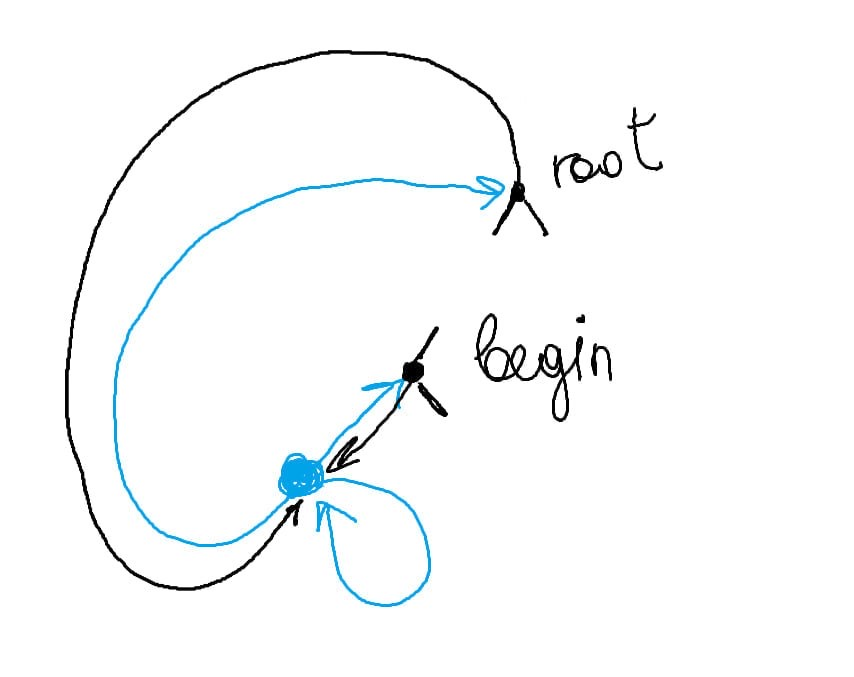 root
begin